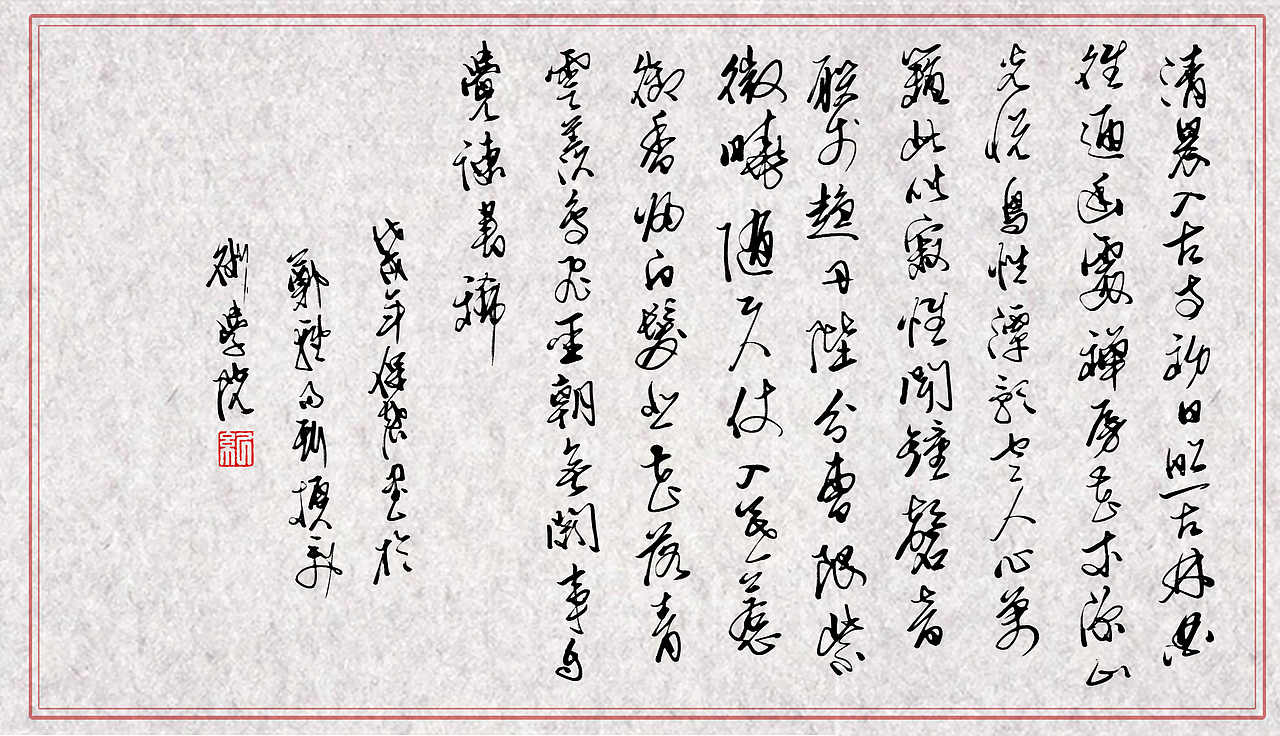 清晨入古寺初日照高林曲
徑通幽處禪房花木深山
光悅鳥性潭影空人心萬
籟此俱寂惟聞鐘磬音
聯步趨丹陛分曹限紫
微曉隨天仗入暮惹
御香歸白髮悲花落青
雲羨鳥飛聖朝無闕事自
覺諫書稀
戊戌年保於
鄭
術學院